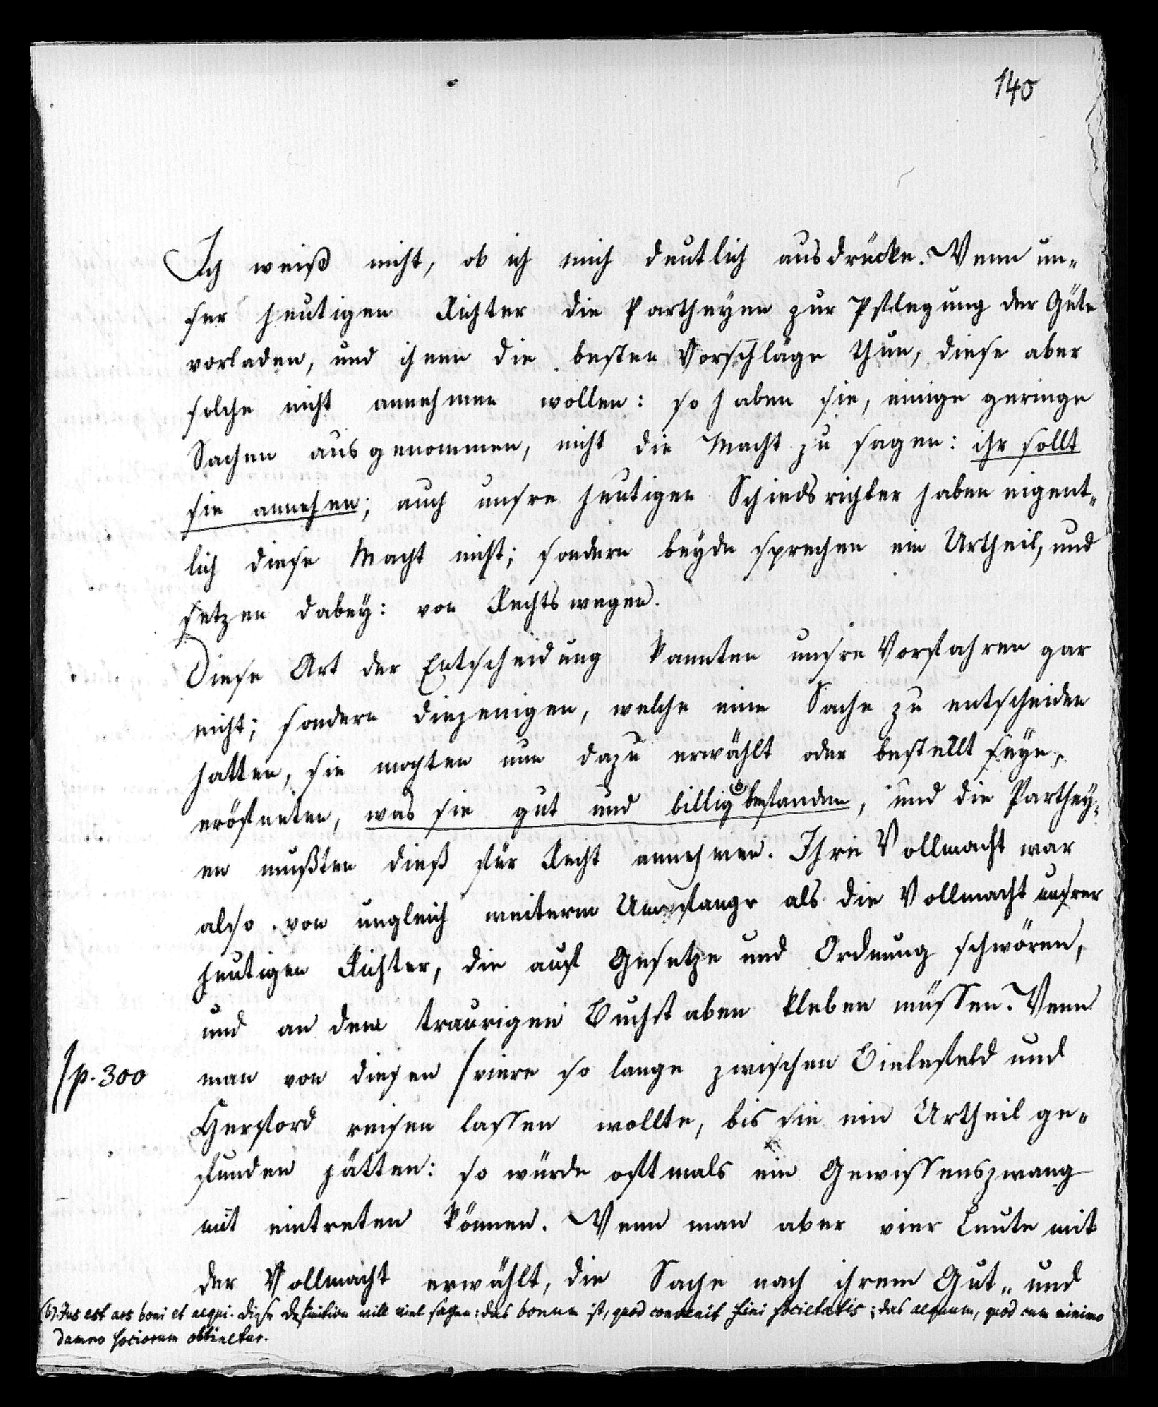 140
Ich weiß nicht, ob ich mich deutlich ausdrücke. Wenn un-
sre heutigen Richter die Partheyen zur Pflegung der Güte
vorladen, und ihnen die besten Vorschläge thun, diese aber
solche nicht annehmen wollen: so haben sie, einige geringe
Sachen ausgenommen, nicht die Macht zu sagen: ihr sollt
sie annehmen; auch unsre heutigen Schiedsrichter haben eigent-
lich diese Macht nicht; sondern beyde sprechen ein Urtheil, und
setzen dabey: von Rechtswegen.
Diese Art der Entscheidung kannten unsre Vorfahren gar
nicht; sondern diejenigen, welche eine Sache zu entscheiden
hatten, sie mogten nun dazu erwählt oder bestellt seyn,
eröfneten, was sie gut und billig befanden, und die Parthey-
en mußten dieß für Recht annehmen. Ihre Vollmacht war
also von ungleich weiterm Umfange als die Vollmacht unsrer
heutigen Richter, die auf Gesetze und Ordnung schwören,
und an dem traurigen Buchstaben kleben müssen. Wenn
/p. 300 man von diesen /viere so lange zwischen Bielefeld und
Herford reisen lassen wollte, bis sie ein Urtheil ge-
funden hätten: so würde oftmals ein Gewissenszwang
mit eintreten können. Wenn man aber vier Leute mit
der Vollmacht erwählt, die Sache nach ihrem Gut- und
(b) Jus est ars boni et aequi. Diese Definition will viel sagen: das bonum ist, quod convenit fini societatis; das aequum, quod cum minimo
damno sociorum obtinetur.